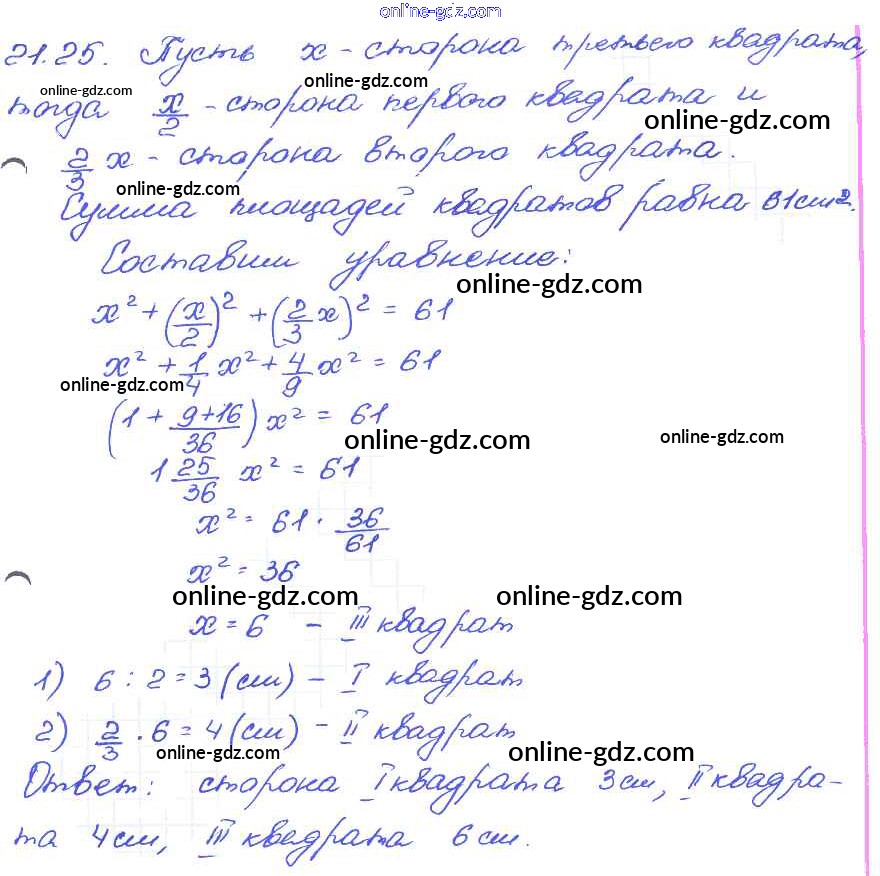 online-gdz.com
21.25. Пусть x - сторона третьего квадрата,
online-gdz.com online-gdz.com
тогда x/2 - сторона первого квадрата и
online-gdz.com
2/3 x - сторона второго квадрата.
online-gdz.com
Сумма площадей квадратов равна 61 см².
Составим уравнение:
online-gdz.com
x² + (x/2)² + (2/3 x)² = 61
x² + 1/4 x² + 4/9 x² = 61
online-gdz.com
(1 + (9+16)/36) x² = 61
online-gdz.com online-gdz.com
1 25/36 x² = 61
x² = 61 · 36/61
x² = 36
online-gdz.com online-gdz.com
x = 6 - III квадрат
1) 6 : 2 = 3 (см) - I квадрат
2) 2/3 · 6 = 4 (см) - II квадрат
online-gdz.com online-gdz.com
Ответ: сторона I квадрата 3 см, II квадра-
та 4 см, III квадрата 6 см.